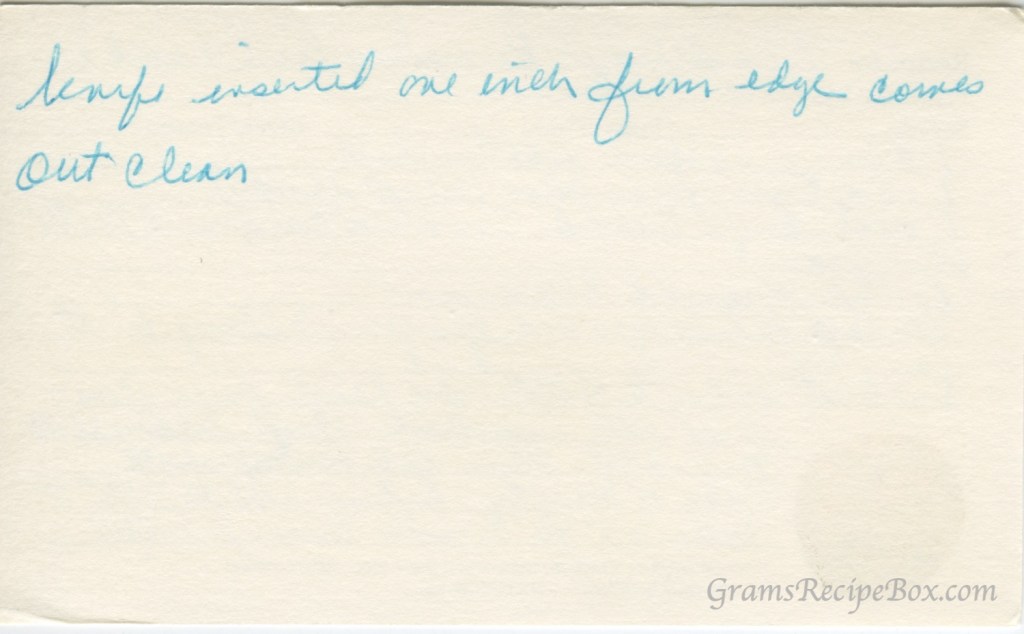 knife inserted one inch from edge comes
out clean
GramsRecipeBox.com